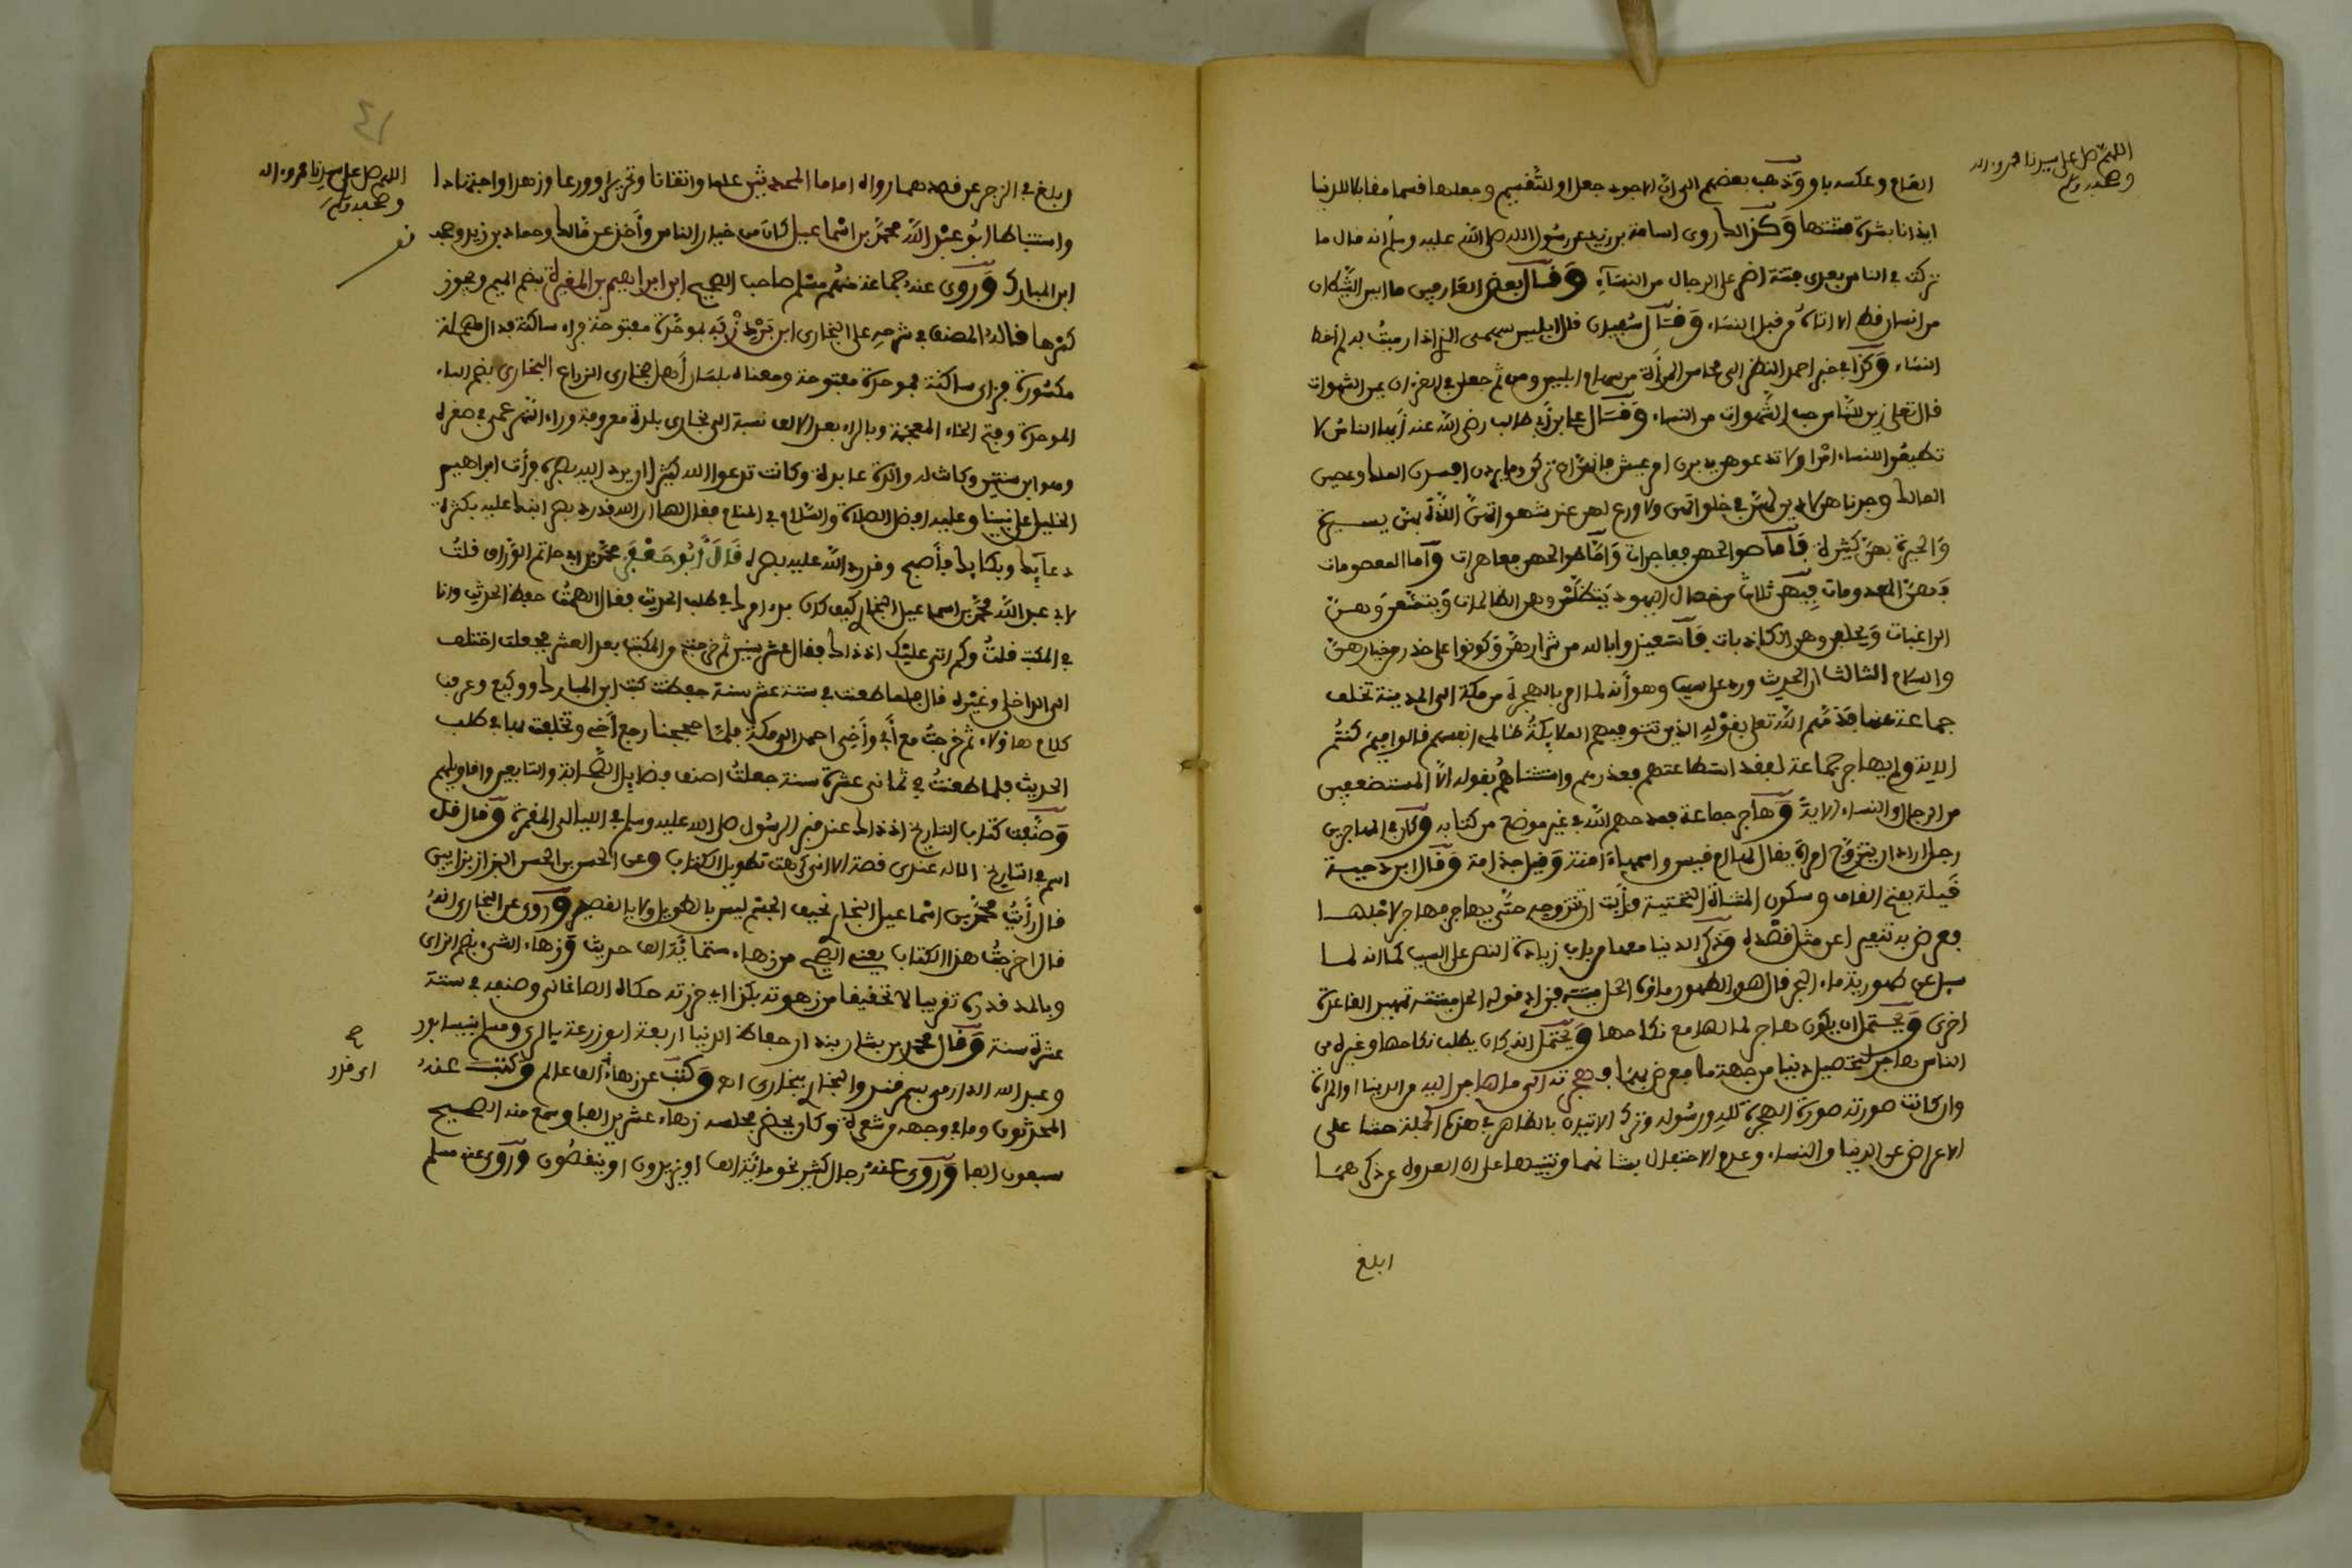 اللهم صل على سيدنا محمد وءاله
وصحبه وسلم
العام وعكسه باو وذهب بعضهم الى ان الاجود جعل او للتقسيم وجعلها قسما مقابلا للدنيا
ايذانا بشدة فتنتها وكذلك روى اسامة بن زيد عن رسول الله صلى الله عليه وسلم انه قال ما
تركت في الناس بعدي فتنة اضر على الرجال من النساء وقال بعض العارفين ما ايس الشيطان
من انسان قط الا اتاه من قبل النساء وقال سفيان قال ابليس سهمي الذي اذا رميت به لم اخط
النساء وكذا في خبر احمد النظر الى محاسن المرأة من سهام ابليس ومن ثم جعلن في القرءان عين الشهوات
قال تعلى زين للناس حب الشهوات من النساء وقال علي بن أبي طالب رضي الله عنه أيها الناس لا
تطيعوا للنساء امرا ولا تدعوهن يدبرن امر عيش فانهن ان تركن وما يردن افسدن الملك وعصين
المالك وجدناهن لا دين لهن في خلواتهن ولا ورع لهن عند شهواتهن اللذة بهن يسيرة
والحيرة بهن كثيرة فأما صوالحهن ففاجرات وأما طوالحهن فعاهرات وأما المعصومات
فهن المعدومات فيهن ثلاث خصال من اليهود يتظلمن وهن الظالمات ويتمنعن وهن
الراغبات ويحلفن وهن الكاذبات فاستعيذوا بالله من شرارهن وكونوا على حذر من خيارهن
والسلام الثالث ان الحديث ورد على سبب وهو أنه لما امر بالهجرة من مكة الى المدينة تخلف
جماعة عنها فذمهم الله تعلى بقوله الذين تتوفيهم الملايكة ظالمي انفسهم قالوا فيم كنتم
الاية ولم يهاجر جماعة لفقد استطاعتهم فعذرهم واستثناهم بقوله الا المستضعفين
من الرجال والنساء الاية وهاجر جماعة فمدحهم الله في غير موضع من كتابه وكان في المهاجرين
رجل اراد ان يتزوج امرأة يقال لها ام قيس واسمها ءامنة وقيل جذامة وقال ابن دحية
قيلة بفتح القاف وسكون المثناة التحتية فأبت ان تتزوجه حتى يهاجر فهاجر لاجلها
فعرض به تنفيرا عن مثل قصده وذكر الدنيا معها من باب زيادة النص على السبب كما انه لما
سيل عن طهورية ماء البحر قال هو الطهور ماؤه الحل ميتته فزاد قوله الحل ميتته تمهيد القاعدة
اخرى ويحتمل ان يكون هاجر لمالها مع نكاحها ويحتمل انه كان يطلب نكاحها وغيره من
الناس هاجر لتحصيل دنيا من جهة ما فعرض بهما فهجرته الى ما هاجر اليه من الدنيا او المرأة
وان كانت صورته صورة الهجرة لله ورسوله وترك الاتيان بالظاهر في هذه الجملة حثا على
الاعراض عن الدنيا والنساء وعدم الاحتفال بشانهما وتنبيها على ان العدول عن ذكرهما
ابلغ
٤١
اللهم صل على سيدنا محمد وءاله
وصحبه وسلم
ابلغ في الزجر عن قصدهما رواه اماما المحدثين علما واتقانا وتحريرا وورعا وزهدا واجتهادا
واستنباطا ابو عبد الله محمد بن اسماعيل كان من خيار الناس وأخذ عن مالك وحماد بن زيد وصحب
ابن المبارك وروى عنه جماعة منهم مسلم صاحب الصحيح ابن ابراهيم بن المغيرة بضم الميم ويجوز
كسرها قاله المصنف في شرحه على البخاري ابن بردزبه بموحدة مفتوحة فراء ساكنة فدال مهملة
مكسورة فزاى ساكنة فموحدة مفتوحة ومعناه بلسان أهل بخارى الزراع البخاري بضم الباء
الموحدة وفتح الخاء المعجمة وبالراء بعد الالف نسبة الى بخارى بلدة معروفة وراء النهر عمي في صغره
وهو ابن سنتين وكانت له والدة عابدة وكانت تدعوا الله كثيرا ان يرد اليه بصره فرأت ابراهيم
الخليل على نبينا وعليه افضل الصلاة والسلام في المنام فقال لها ان الله قد رد بصر ابنك عليه بكثرة
دعايك وبكايك فأصبح وقد رد الله عليه بصره قال أبو جعفر محمد بن ابي حاتم الوراق قلت
لابي عبد الله محمد بن اسماعيل البخاري كيف كان بدء امرك في طلب الحديث فقال الهمت حفظ الحديث وانا
في المكتب قلت وكم اتى عليك اذ ذاك فقال عشر سنين ثم خرجت من المكتب بعد العشر فجعلت اختلف
الى الداخلي وغيره قال فلما طعنت في ستة عشر سنة حفظت كتب ابن المبارك ووكيع وعرفت
كلام هاؤلاء ثم خرجت مع أمي وأخي احمد الى مكة فلما حججنا رجع أخي وتخلفت بها في طلب
الحديث فلما طعنت في ثماني عشرة سنة جعلت اصنف فضايل الصحابة والتابعين واقاويلهم
وصنفت كتاب التاريخ اذ ذاك عند قبر الرسول صلى الله عليه وسلم في الليالي المقمرة وقال قل
اسم في التاريخ الا له عندي قصة الا اني كرهت تطويل الكتاب وعن الحسن بن الحسين البزاز
قال رأيت محمد بن اسماعيل البخاري نحيف الجسم ليس بالطويل ولا بالقصير وروى عن البخاري انه
قال اخرجت هذا الكتاب يعني الصحيح من زهاء ستمائة الف حديث وزهاء الشيء بضم الزاى
وبالمد قدره تقريبا لا تحقيقا من زهوته بكذا اي حزرته حكاه الصاغاني وصنفه في ستة
عشرة سنة وقال محمد بن بشار بندار حفاظ الدنيا اربعة ابو زرعة بالري ومسلم بنيسابور
وعبد الله الدارمي بسمرقند والبخاري ببخارى اهـ وكتب عن زهاء ألف عالم وكتب عنه
المحدثون وما في وجهه شعرة وكان يحضر مجلسه زهاء عشرين الفا وسمع منه الصحيح
سبعون الفا وروى عنه رجال كثير نحو مائة الف او يزيدون او ينقصون وروى عنه مسلم